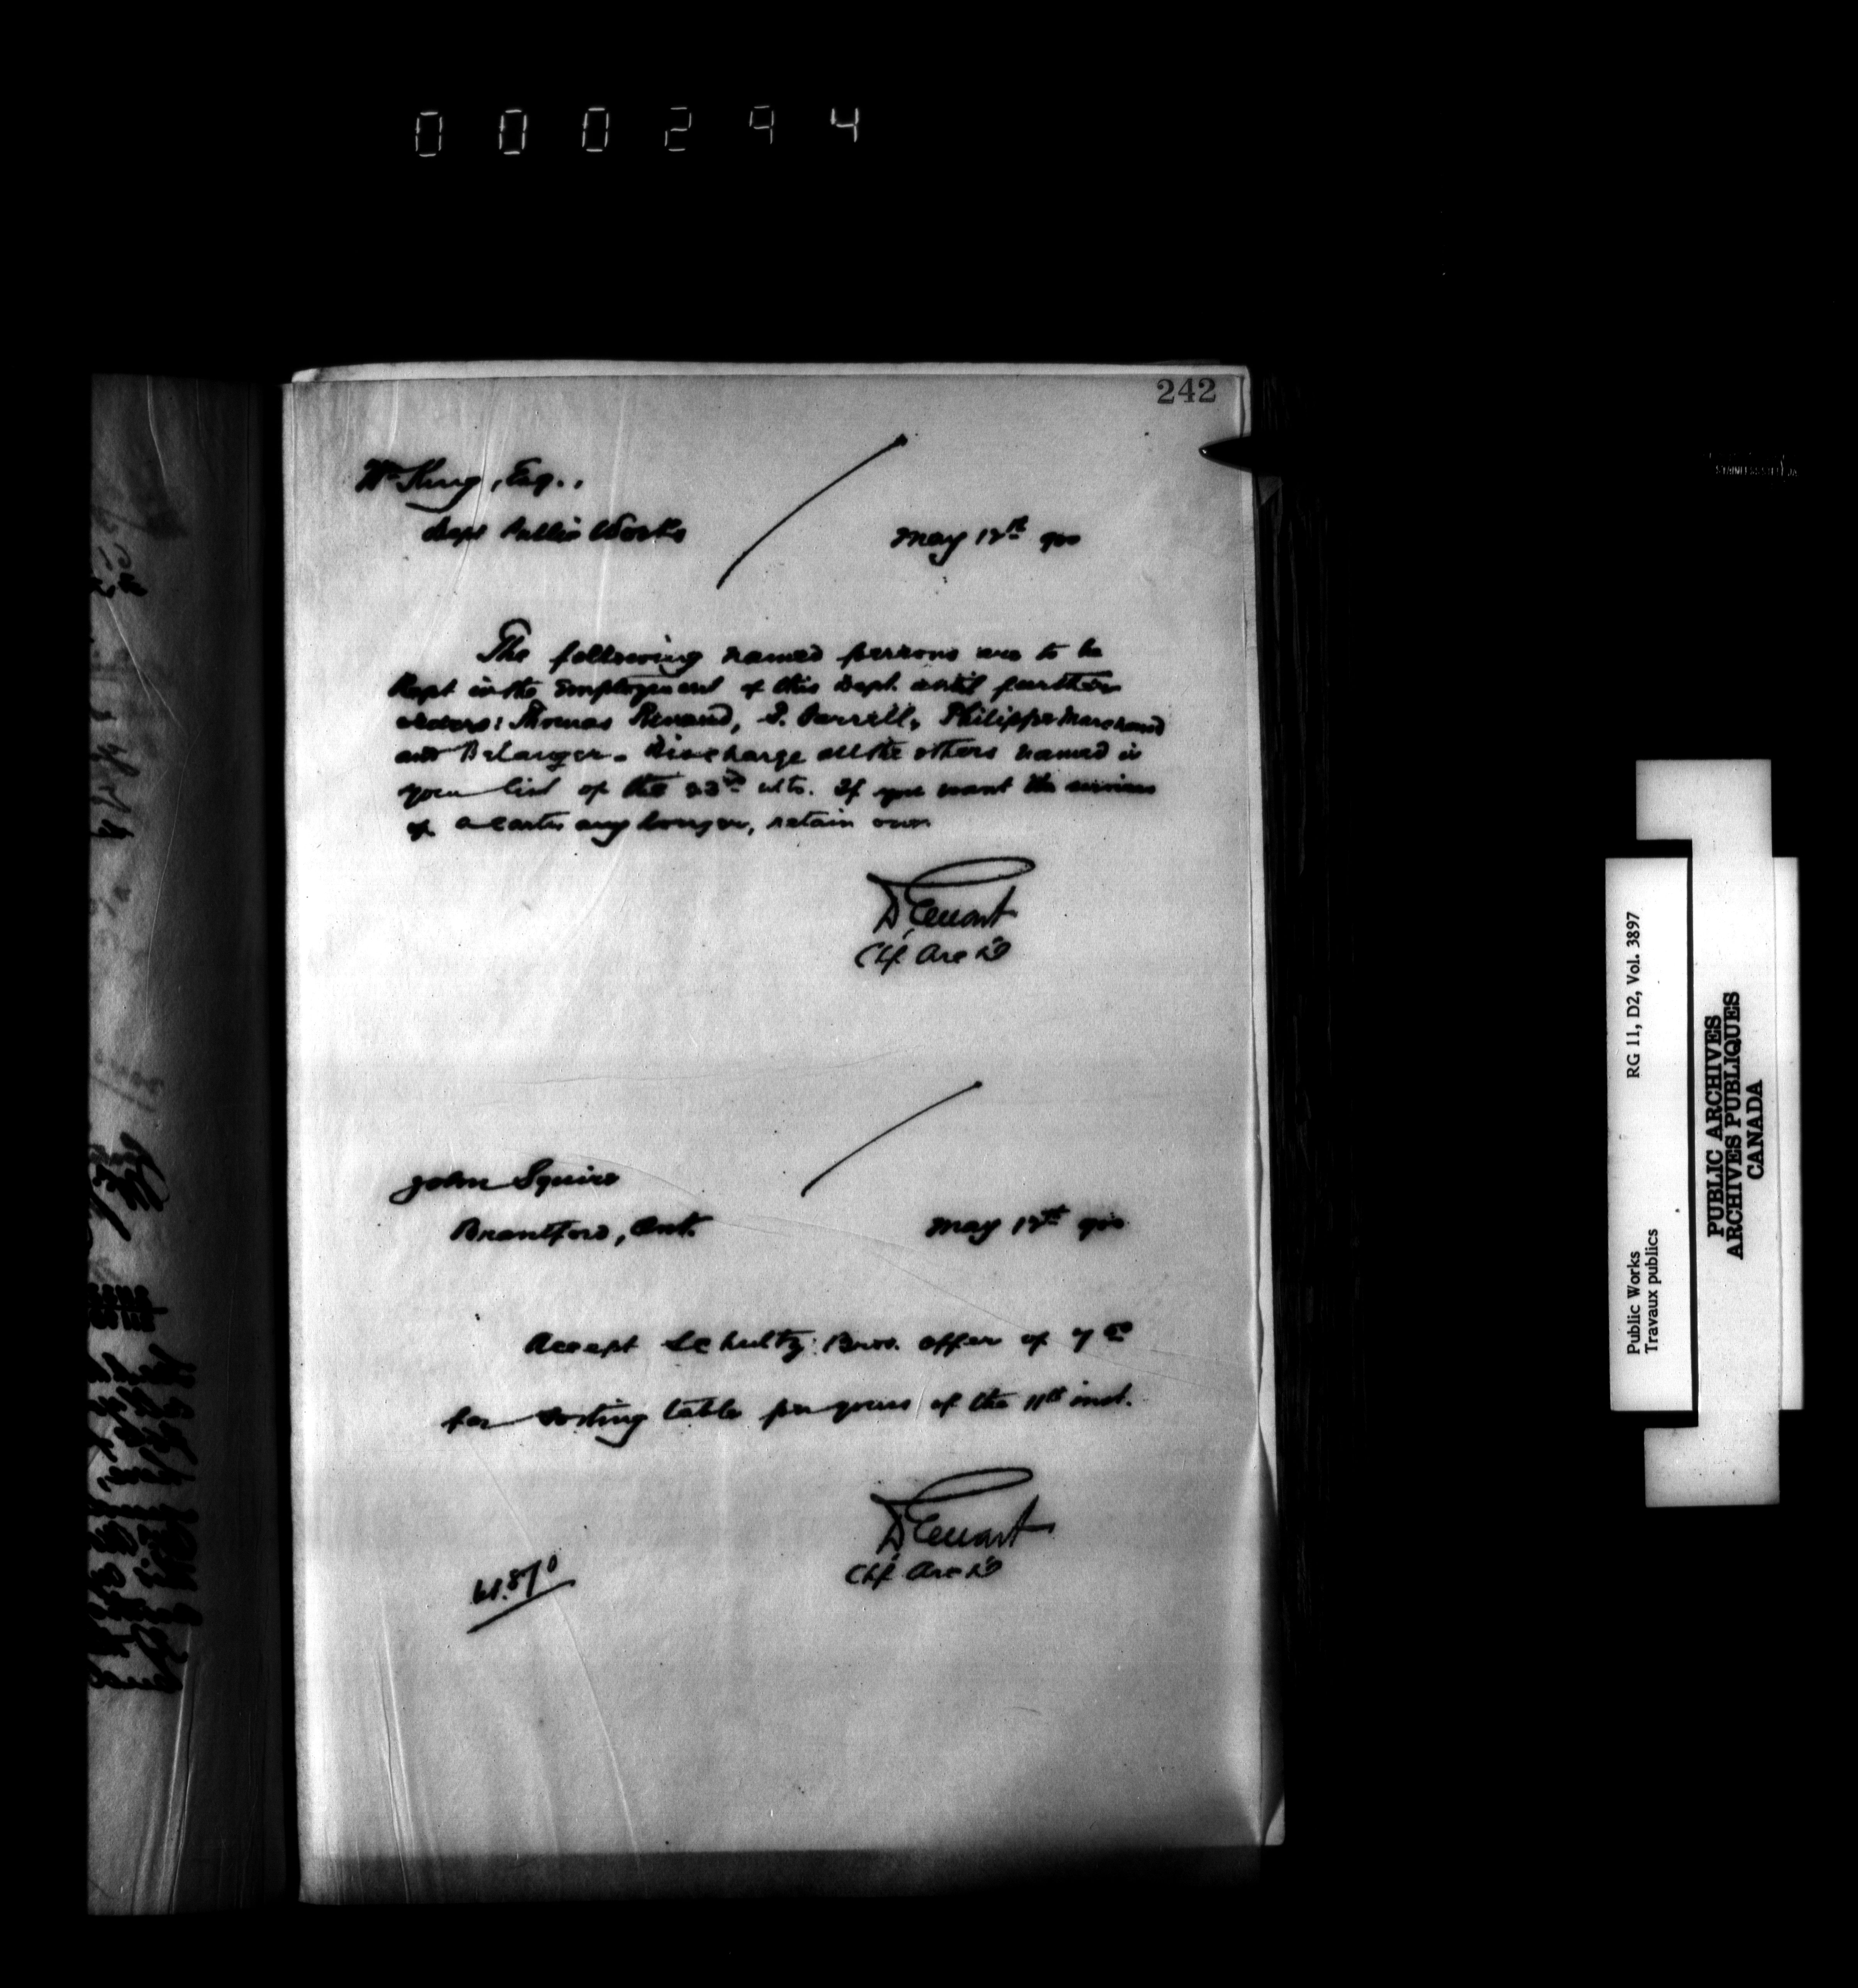 000294
242
Wm King, Esq.,
Dept Public Works
May 12th 900
The following named persons are to be
Kept in the employment of this Dept. until further
orders: Thomas Renaud, Farrell, Philippe Marchand
and Belanger. Discharge all the others named in
your list of the 23rd ulto. If you want the services
of a carter any longer, retain one.
D Ewart
Chf. Arch't
John Squire
Brantford, Ont.
May 12th 900
Accept Schultz Bros. offer of 7 00
for sorting table per yours of the 11th inst.
D Ewart
Chf. Arch't
Public Works
Travaux publics
RG 11, D2, Vol. 3897
PUBLIC ARCHIVES
ARCHIVES PUBLIQUES
CANADA